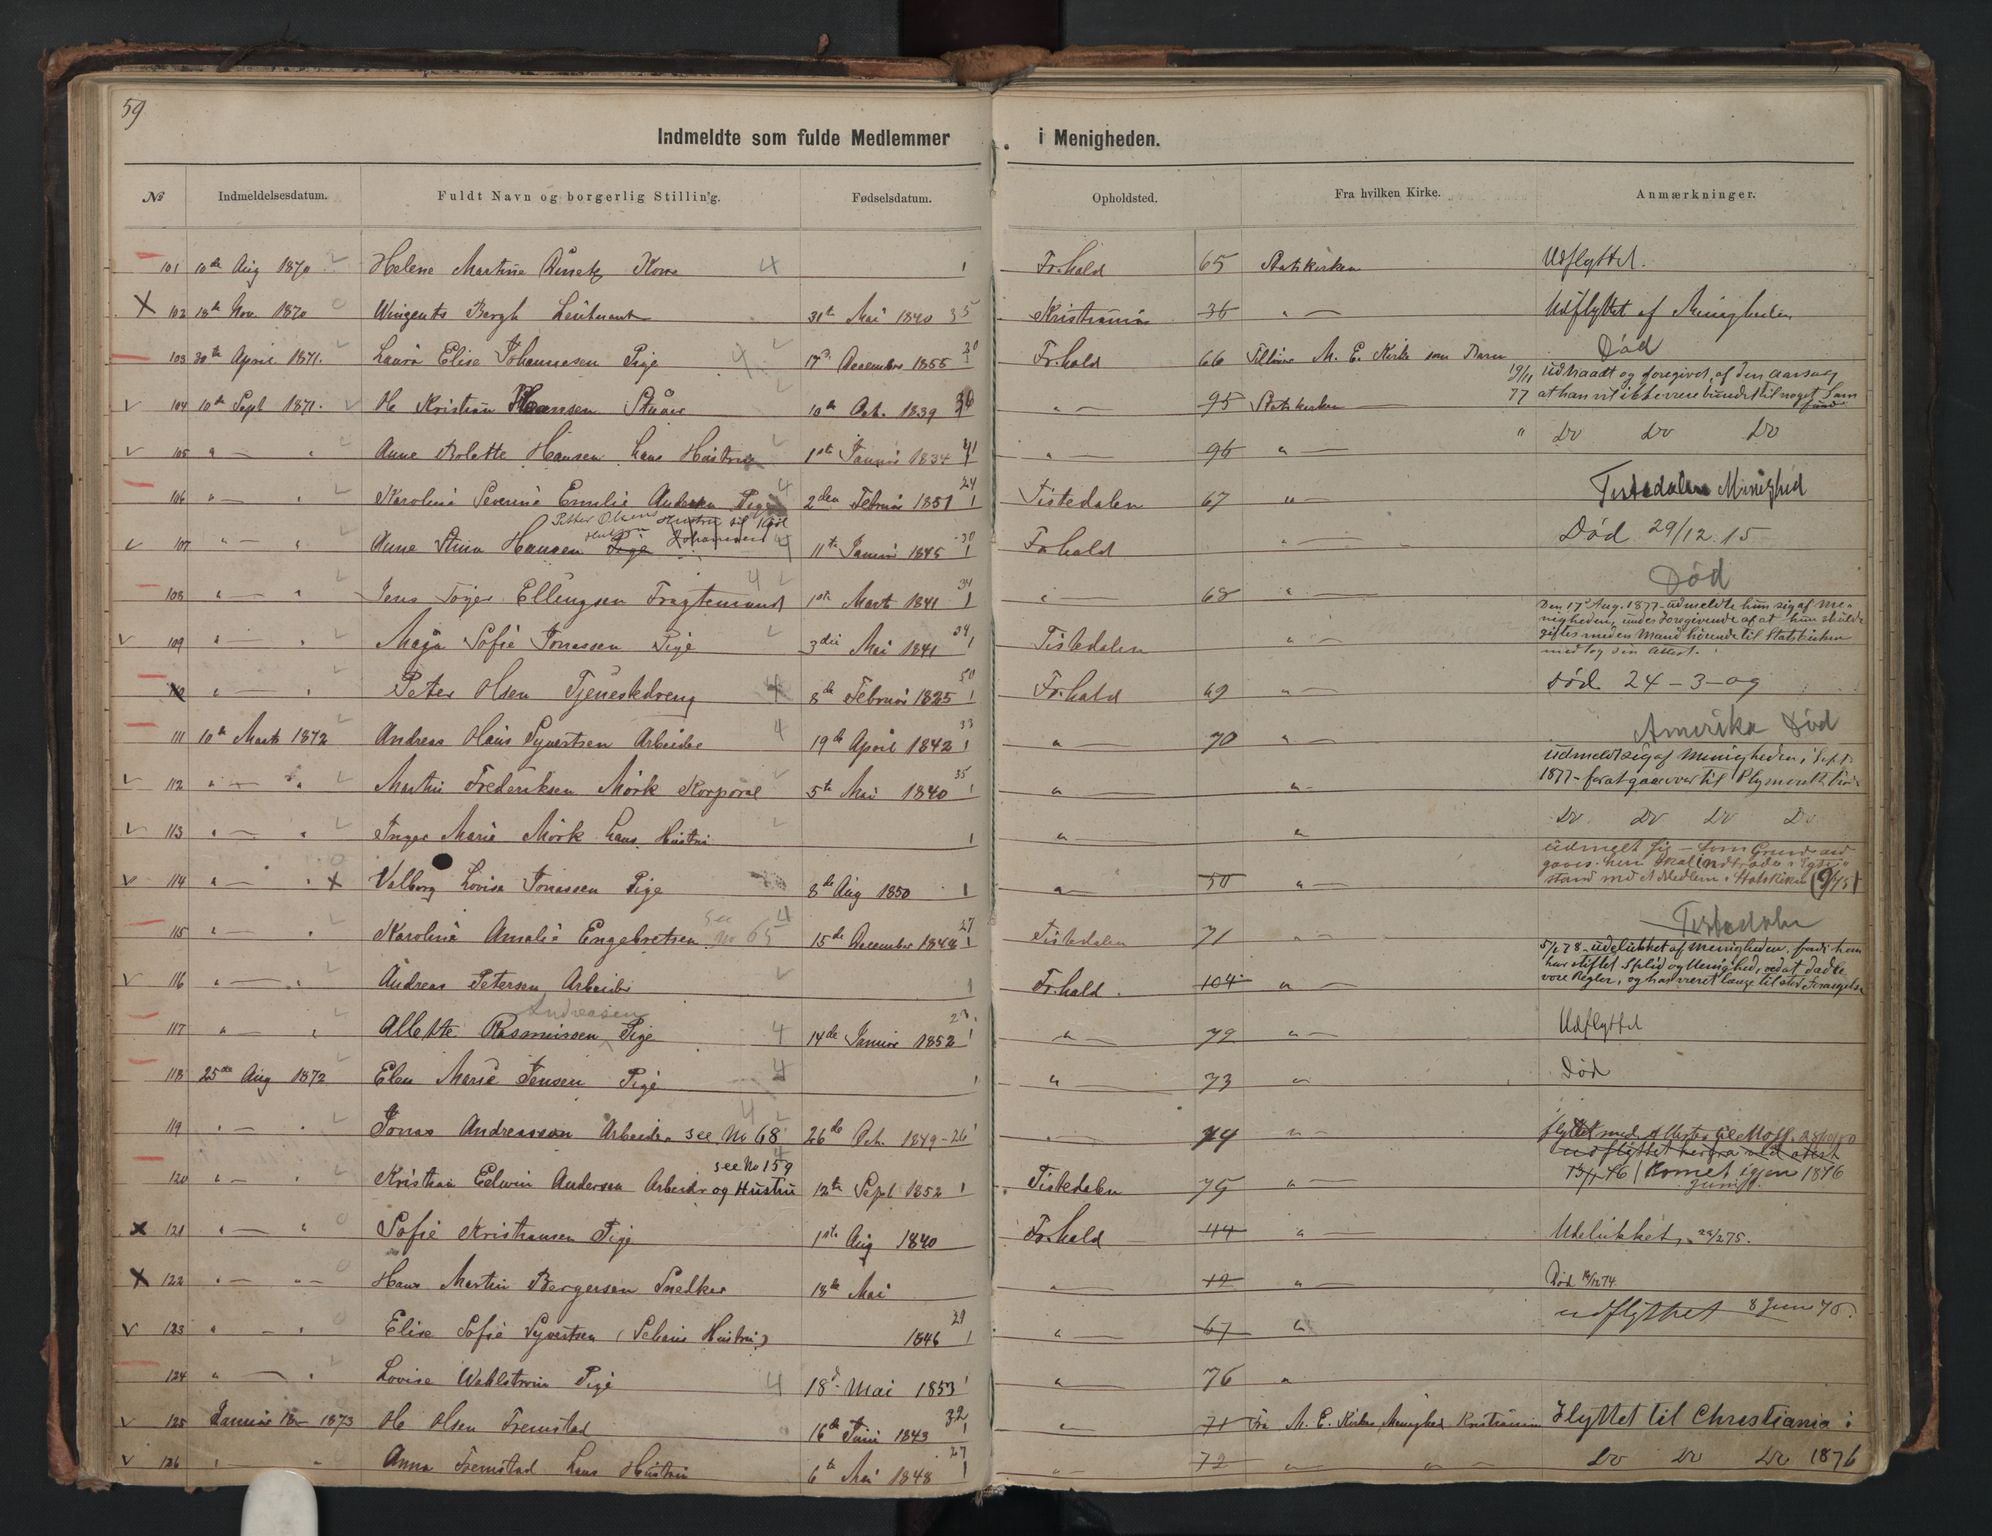 59
Indmeldte som fulde Medlemmer i Menigheden.
No Indmeldelsesdatum. Fuldt Navn og borgerlig Stilling. Fødselsdatum. Opholdsted. Fra hvilken Kirke. Anmærkninger.
101 10de Aug 1870 Helene Martine Kone 4 Fr.hald 65 Statskirken Udflyttet.
102 18de Nov. 1870 Bergh Lieutenant 31te Mai 1840 35 Kristiania 36 " — Udflyttet af Menigheden
103 30te April 1871. Laura Elise Johannesen Pige 4 17de December 1855 Fr.hald 66 M. E. Kirke som Barn Død
19/11 udtraadt og foregivet af den Aarsag
104 10de Sept 1871. H Kristian Hansen 10de Oct. 1839 36 " — 95 Statskirken — 77 at han vil ikke være bundet til noget Sam
fund
105 " — " Anne Bolette Hansen hans Hustru 1ste Januar 1834 41 " — 96 " — " Do Do Do
106 " — " Karoline Severine Emilie Andersen Pige 4 2den Februar 1851 24 Tistedalen 67 " — Tistedalen Menighed
Petter Olsens Hustru
107 " — " Anne Stina Hansen Pige 4 11te Januar 1845 30 Fr.hald " — Død 29/12.15
108 " — " Jens Ellingsen Fragtemand 4 1ste Marts 1841 34 " — 68 " — Død
Den 17 Aug. 1877 udmeldte hun sig af Me-
nigheden, under Foregivende af at hun skulde
109 " — " Maja Sofie Jonassen Pige 3die Mai 1841 34 Tistedalen " — giftes med en Mand hörende til Statskirken
medtog sin Attest.
" — " Peter Olsen Tjenestedreng 4 8de Februar 1825 50 Fr.hald 69 " — Død 24-3-09
111 10de Marts 1872 Andreas Hans Syvertsen Arbeider 4 19de April 1842 33 " — 70 " — Amerika Død
udmeldt sig af Menigheden i Sept
112 " — " Martin Frederiksen Mörk Korporal 5te Mai 1840 35 " — " — 1877 — for at gaa over til Plymouth
113 " — " Inger Marie Mörk hans Hustru " — " Do Do Do Do
udmelt sig — som Grund
114 " — " Valborg Lovise Jonassen Pige 8de Aug 1850 " — 50 " — stand med et Medlem i Statskirken
115 " — " Karoline Amalie Engebretsen see No 65 4 15de December 1848 27 Tistedalen 71 " — Tistedalen
5/6 78 — udelukket af Menigheden, fordi han
har stiftet Splid og Uenighed, ved at dadle
116 " — " Andreas Petersen Arbeider Fr.hald. 104 " — vore Regler, og har været længe til stor Forargelse
Andreasen
117 " — " Alette Rasmussen Pige 4 14de Januar 1852 23 " — 72 " — Udflyttet
118 25de Aug 1872 Elen Marie Jensen Pige 4 " — 73 " — Død
119 " — " Jonas Andreassen Arbeider see No 68 4 26de Oct. 1849 - 26 " — 74 " — flyttet med Attest til Moss. 28/10/80
udflyttet herfra ved Attest
see No 159
120 " — " Kristian Edwin Andersen Arbeider og Hustru 12te Sept 1852 Tistedalen 75 " — Komet igjen 1876
Juni
121 " — " Sofie Kristiansen Pige 1ste Aug 1840 Fr.hald 44 " — Udelukket, 22/2 75.
122 " — " — Hans Martin Bergersen Snedker 18de Mai " — 12 " — Død 74
123 " — " Elise Sofie Syvertsen Hustru) 1846 29 " — 67 " udflyttet 8 Juni 75.
124 " — " Lovise Wahlström Pige 4 18de Mai 1853 " — 76 "
125 Januar 18 — 1873 H Olsen Fremstad 16de Juni 1843 32 " — 71 Fra M. E. Kirkes Menighed Kristiania Flyttet til Christiania i
126 " — " Anna Fremstad hans Hustru 6te Mai 1848 27 " — 72 " — " — Do Do Do 1876